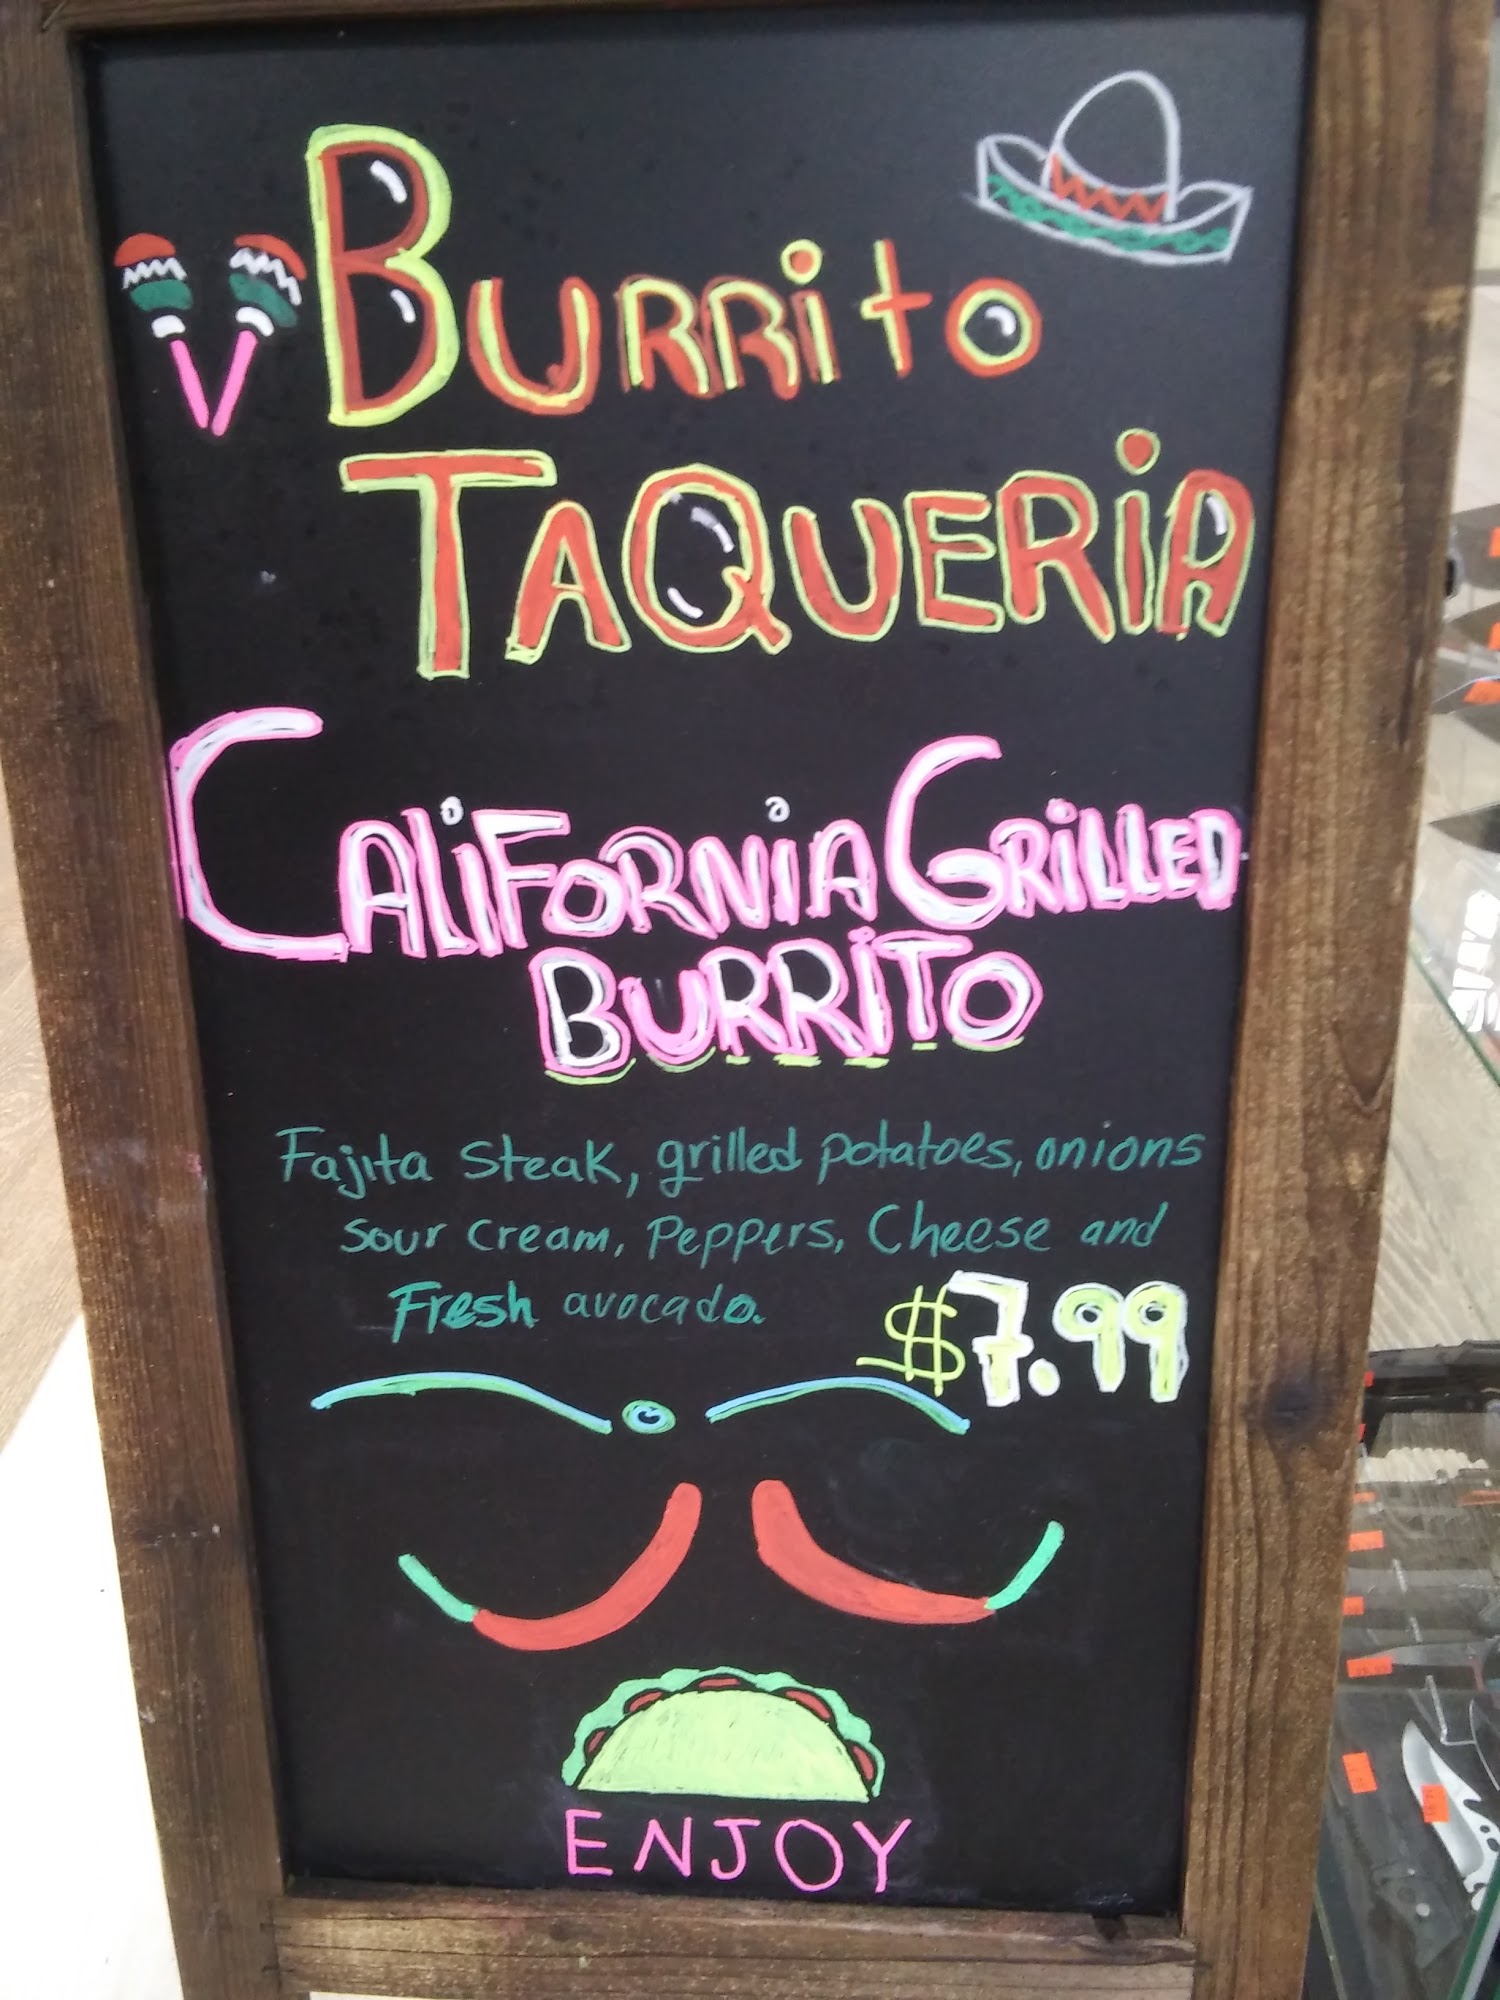 BURRito
TAQUERiA
CALiFORNiA GRiLLED
BURRiTO
Fajita Steak, grilled potatoes, onions
sour cream, Peppers, Cheese and
Fresh avocado.
$7.99
ENJOY